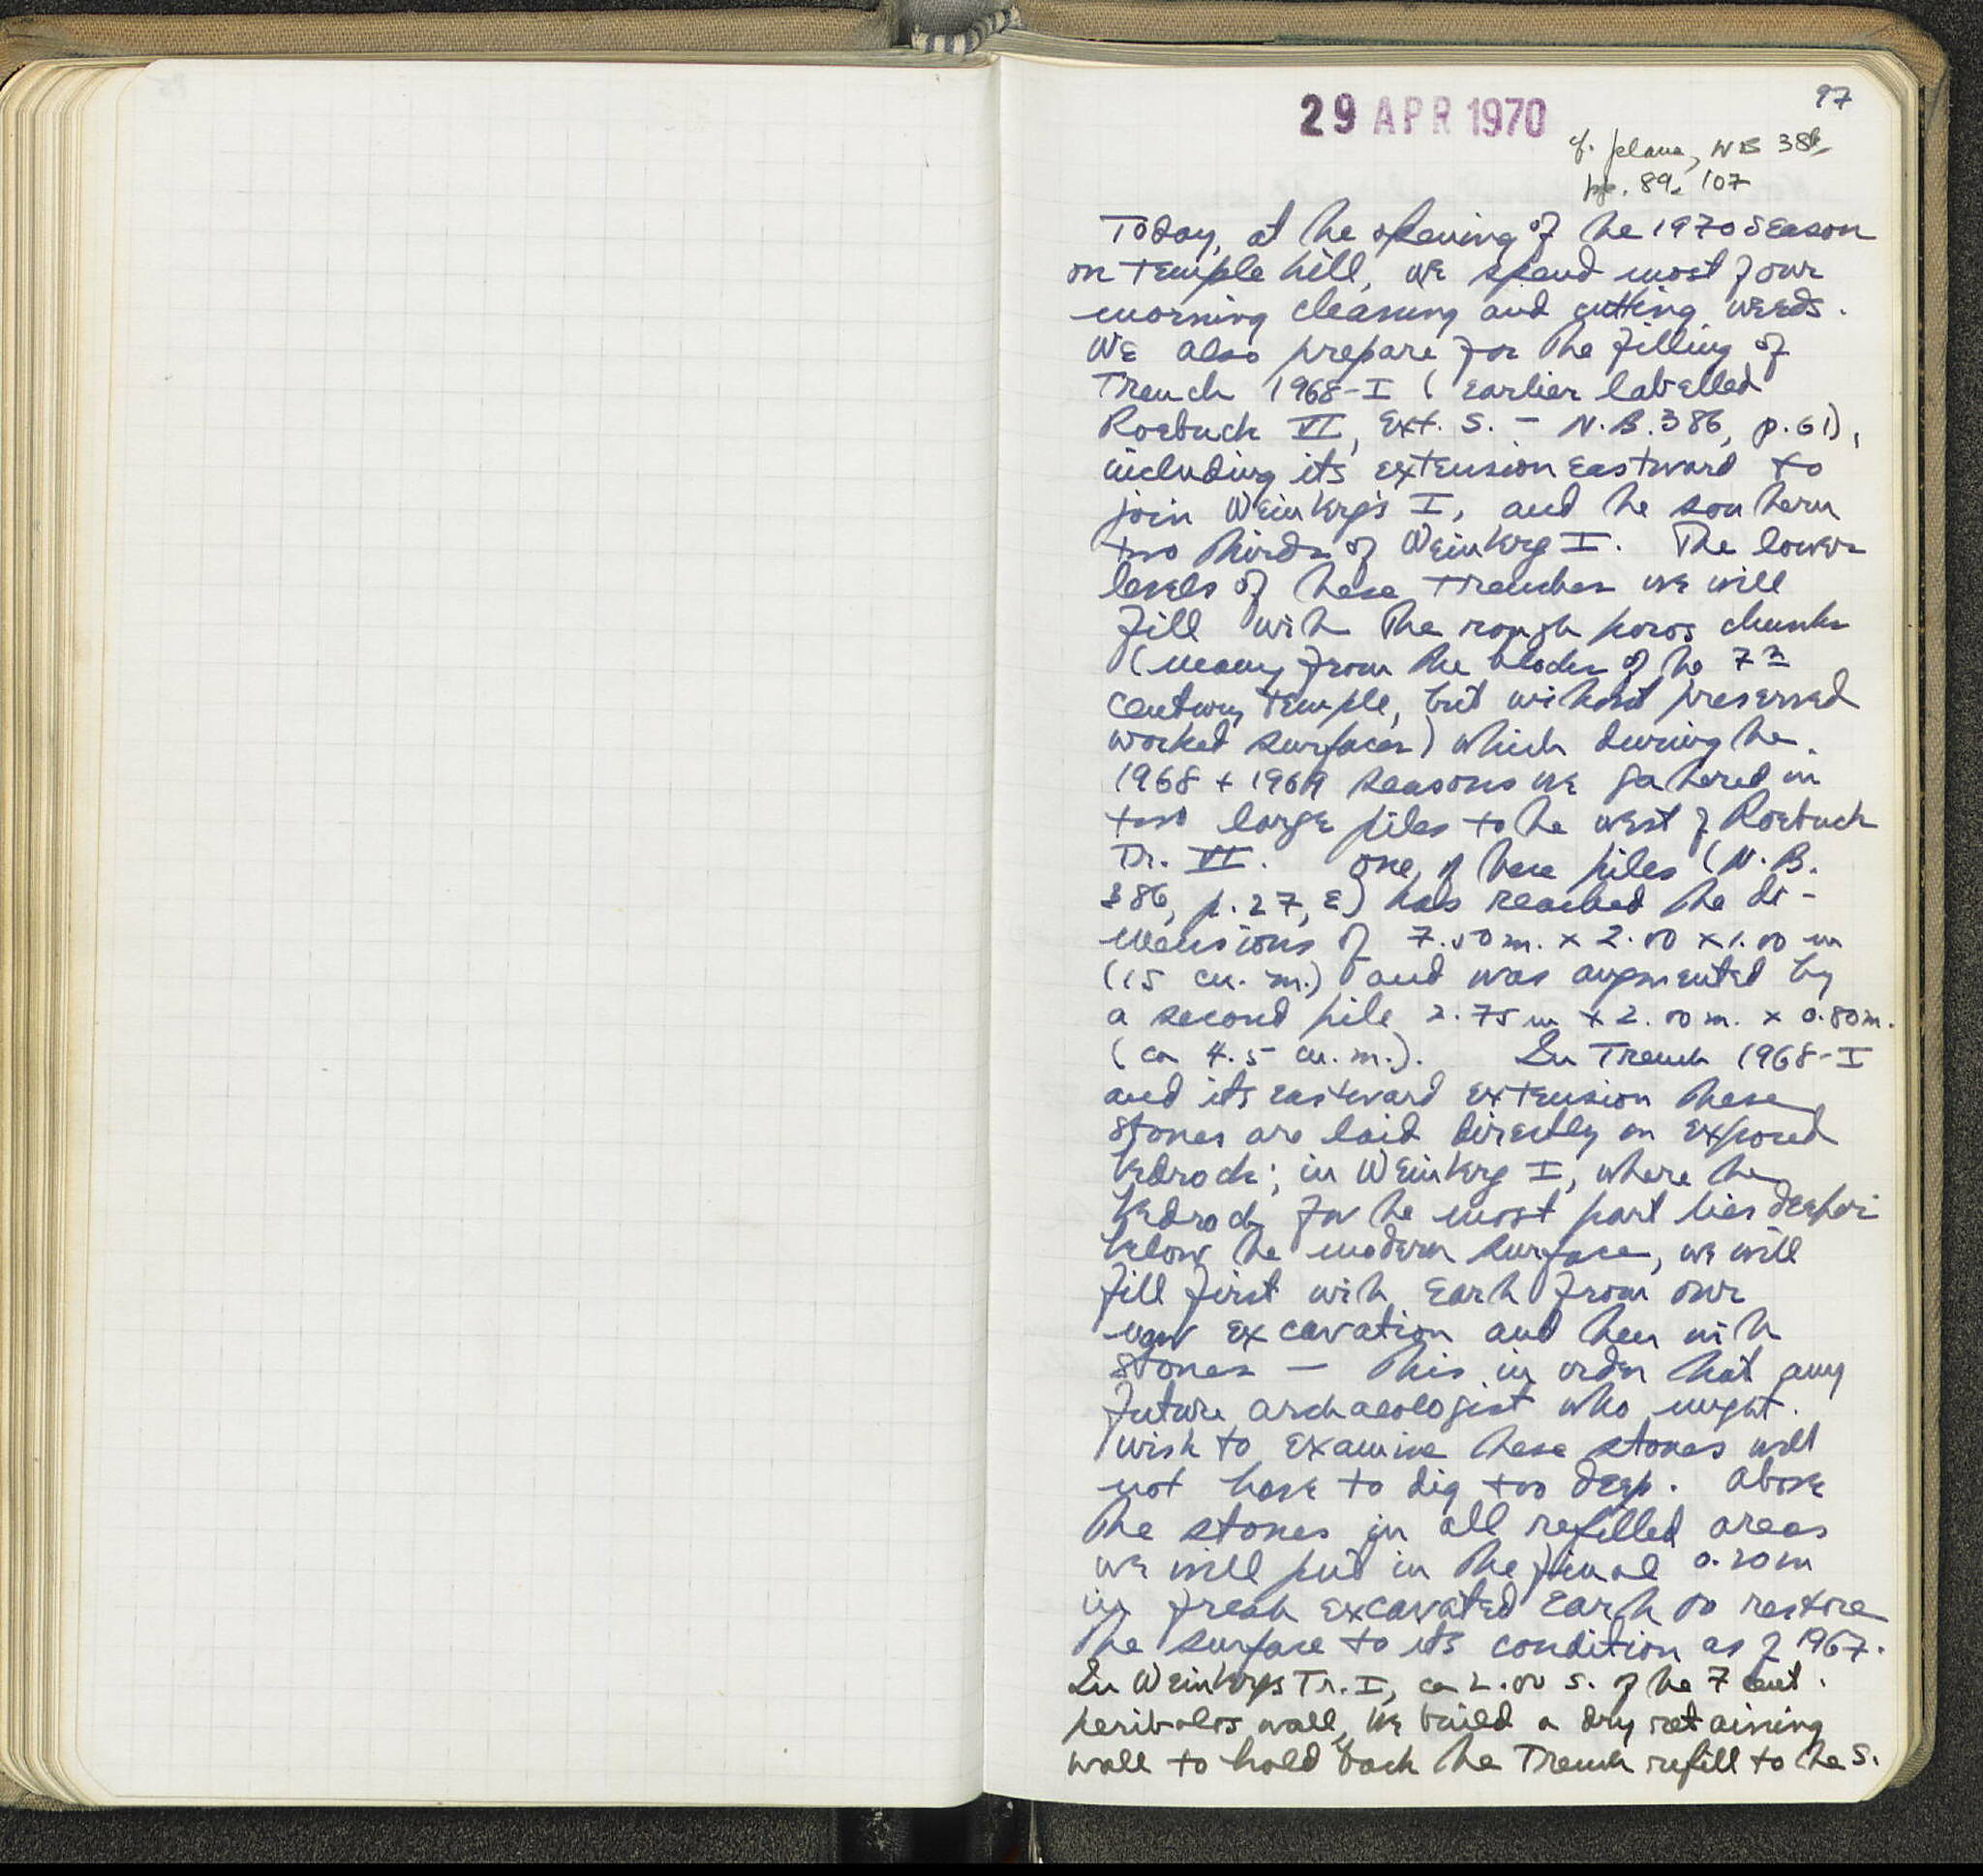 97
29 APR 1970
cf. plans, NB 386,
pp. 89, 107
Today, at the opening of the 1970 season
on Temple hill, we spend most of our
morning cleaning and cutting weeds.
We also prepare for the filling of
Trench 1968-I (earlier labelled
Roebuck VI, Ext. S. - N.B. 386, p. 61),
including its extension eastward to
join Weinberg's I, and the southern
two thirds of Weinberg I. The lower
levels of these trenches we will
fill with the rough poros chunks
(many from the blocks of the 7th
century temple, but without preserved
worked surfaces) which during the
1968 + 1969 seasons we gathered in
two large piles to the west of Roebuck
Tr. VI. One of these piles (N.B.
386, p. 27, E) has reached the di-
mensions of 7.50m. x 2.00 x 1.00 m
(15 cu. m.) and was augmented by
a second pile 2.75 m x 2.00 m. x 0.80 m.
(ca 4.5 cu. m.). In Trench 1968-I
and its eastward extension these
stones are laid directly on exposed
bedrock; in Weinberg I, where the
bedrock for the most part lies deeper
below the modern surface, we will
fill first with earth from our
new excavation and then with
stones — this in order that any
future archaeologist who might
wish to examine these stones will
not have to dig too deep. Above
the stones in all refilled areas
we will put in the final 0.20 m
in fresh excavated earth to restore
the surface to its condition as of 1967.
In Weinberg's Tr. I, ca 2.00 S. of the 7 cent.
peribolos wall, we build a dry retaining
wall to hold back the Trench refill to the S.